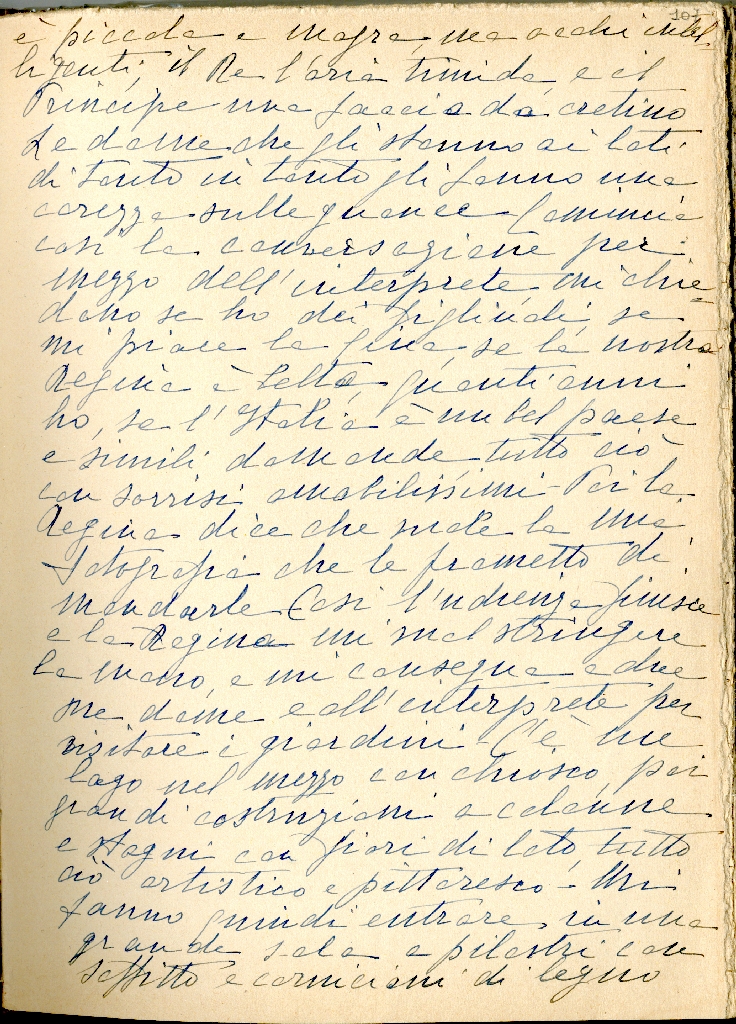 107
è piccola e magra, ma occhi intel-
ligenti, il Re l'aria timida e il
Principe una faccia da cretino
Le dame che gli stanno ai lati
di tanto in tanto gli fanno una
carezza sulle guance. Comincia
così la conversazione per
mezzo dell'interprete mi chie-
dono se ho dei figli, se
mi piace la Cina, se la nostra
Regina è bella, quanti anni
ho, se l'Italia è un bel paese
e simili domande tutto ciò
con sorrisi amabilissimi - Poi la
Regina dice che vuole la mia
fotografia che le prometto di
mandarle Così l'udienza finisce
e la Regina mi vuol stringere
la mano, e mi consegna a due
sue dame e all'interprete per
visitare i giardini - C'è un
lago nel mezzo con chiosco, poi
grandi costruzioni a colonne
e stagni con fiori di loto, tutto
ciò artistico e pittoresco - Mi
fanno quindi entrare in una
grande sala a pilastri con
soffitto e cornicioni di legno